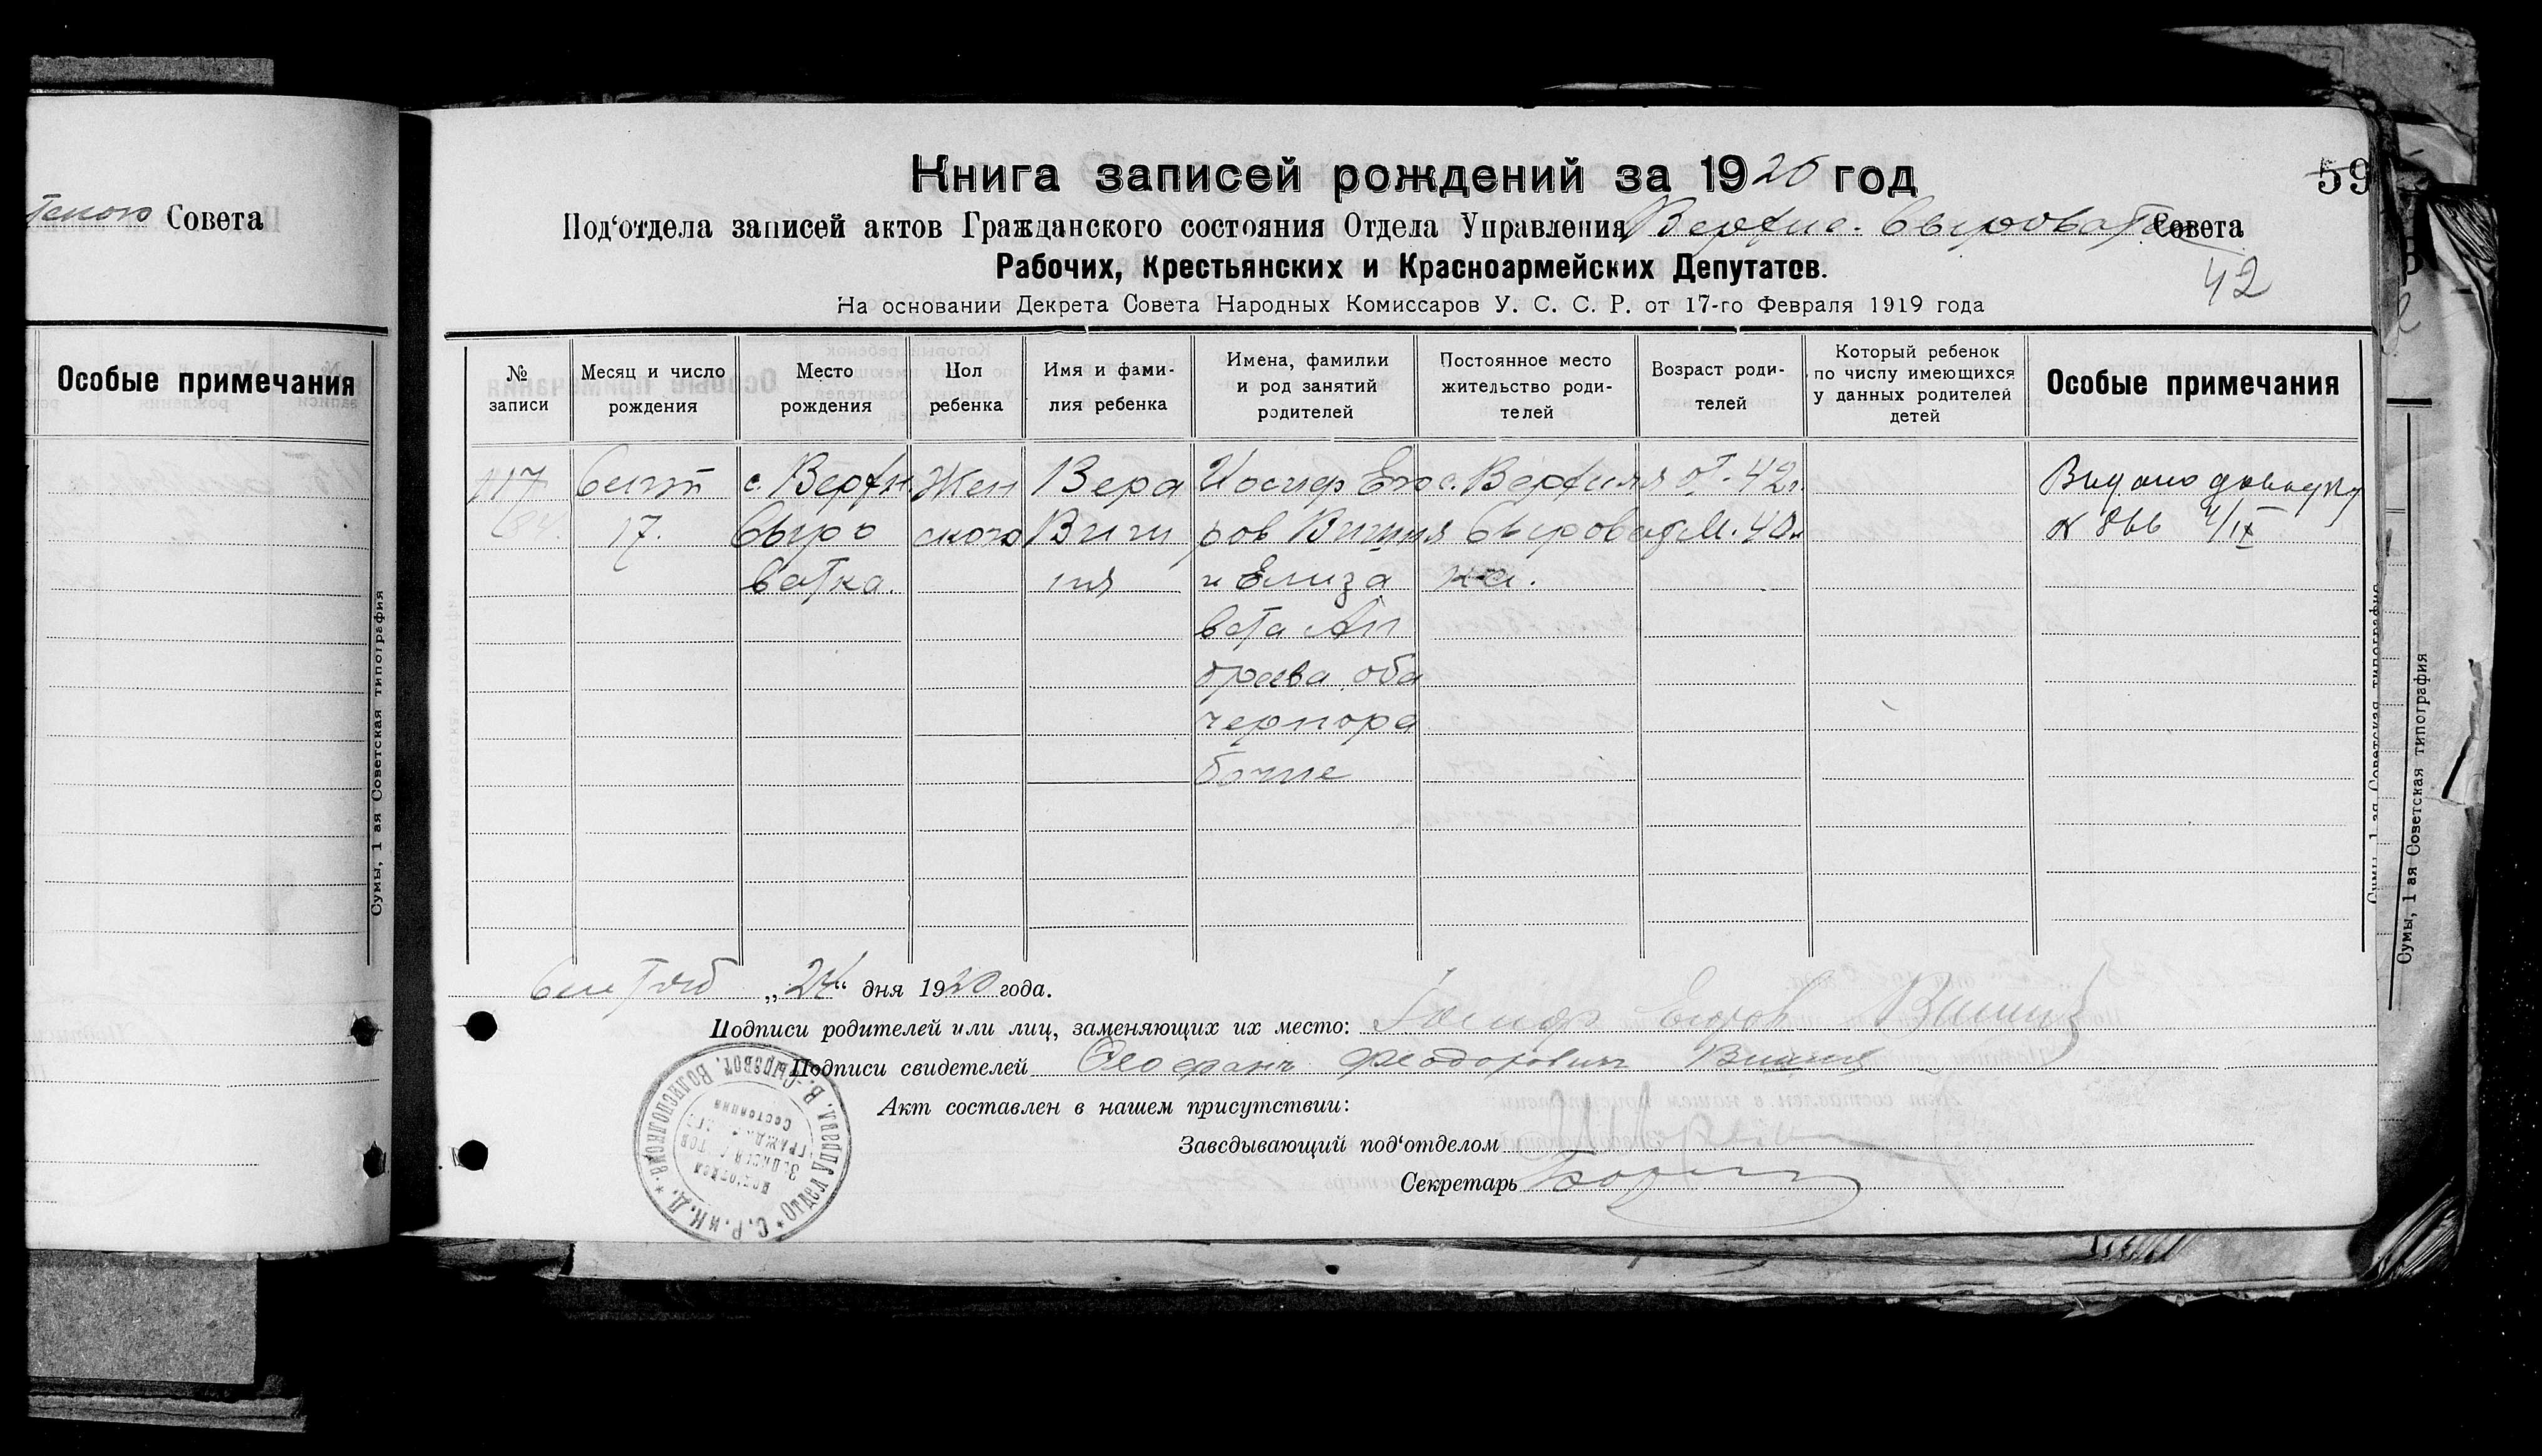 Совета
Особые примечания
Сумы, 1 ая Советская типография
Книга записей рождений за 1920 год
59
Под'отдела записей актов Гражданского состояния Отдела Управления Верхне-Сыроват Совета
Рабочих, Крестьянских и Красноармейских Депутатов.
42
На основании Декрета Совета Народных Комиссаров У. С. С. Р. от 17-го Февраля 1919 года
№ записи
Месяц и число рождения
Место рождения
Пол ребенка
Имя и фами-лия ребенка
Имена, фамилки и род занятий родителей
Постоянное место жительство роди-телей
Возраст роди-телей
Который ребенок по числу имеющихся у данных родителей детей
Особые примечания
117
84
Сент
17.
с. Верхн
Сыро
ватка.
Жен
ского
Вера
Виш
ня
Иосиф Его
ров Вишня
и Елиза
вета Ан
дреева оба
чернора
бочие
с. Верхняя
Сыроват
ка.
от. 42г.
м. 40
Видано довидку
№ 866 4/IX
Сентяб „24“ дня 1920 года.
Подписи родителей или лиц, заменяющих их место: Иосиф Егоров Вишня
Подписи свидетелей Феофанъ Феодорович Вишня
Акт составлен в нашем присутствии:
Заведывающий под'отделом
Секретарь
Отдел Управл. В.-Сыроват. Волисполкома * С.Р. и К.Д. *
Подотдел
Записи Актов
Гражд.
Состояния
Сумы, 1 ая Советская типография
Сумы, 1 ая Советская типография